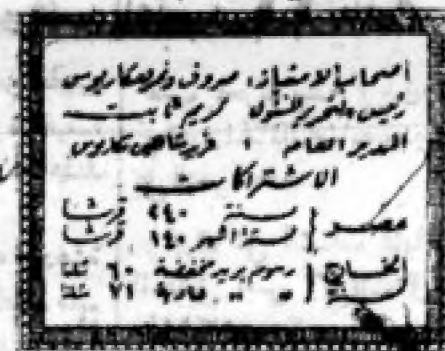 أصحاب الامتياز: صروف ونمر ومكاريوس
رئيس التحرير المسئول كريم ثابت
المدير العام :
الاشتراكات
مصر سنة ٢٤٠ قرشا
لستة أشهر ١٤٠ قرشا
الخارج رسوم بريد مخفضة ٦٠ شلنا
لسنة " " عادية ٧١ شلنا